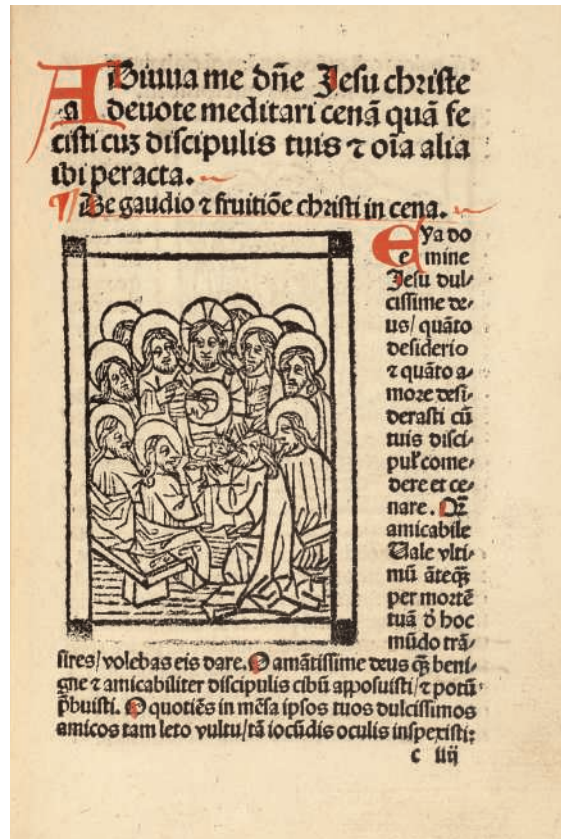 ADiuua me dñe Jesu christe
a deuote meditari cenã quã fe
cisti cuz discipulis tuis ⁊ oĩa alia
ibi peracta.
¶ De gaudio ⁊ fruitiõe christi in cena.
EYa do
e mine
Jesu dul⸗
cissime de⸗
us/ quãto
desiderio
⁊ quãto a⸗
more desi⸗
derasti cũ
tuis disci⸗
pul' come⸗
dere et ce⸗
nare.
amicabile
Uale vlti⸗
mũ ãteq̃
per mortẽ
tuã hoc
mũdo trã⸗
sires/ volebas eis dare. O amãtissime deus q̃ beni⸗
gne ⁊ amicabiliter discipulis cibũ apposuisti/ ⁊ potũ
p̃buisti. O quotiẽs in mẽsa ipsos tuos dulcissimos
amicos tam leto vultu/ tã iocũdis oculis inspexisti:
c iiij